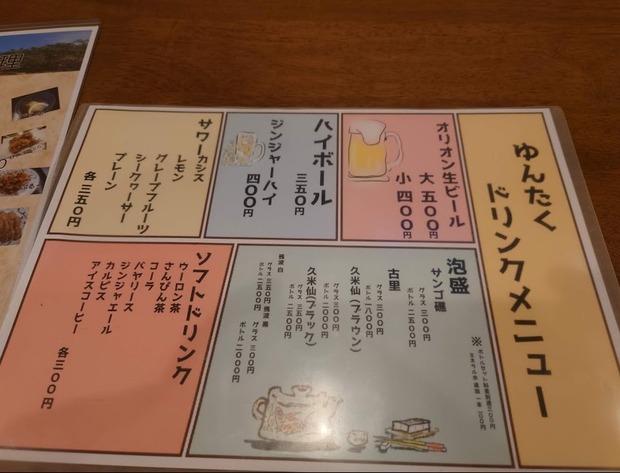 ゆんたく
ドリンクメニュー
オリオン生ビール
大 五〇〇円
小 四〇〇円
ハイボール
三五〇円
ジンジャーハイ
四〇〇円
サワー
カシス
レモン
グレープフルーツ
シークヮーサー
プレーン
各 三五〇円
泡盛
サンゴ礁
グラス 三〇〇円
ボトル 二五〇〇円
古里
グラス 三〇〇円
ボトル 一八〇〇円
久米仙(ブラウン)
グラス 三〇〇円
ボトル 二〇〇〇円
久米仙(ブラック)
グラス 三五〇円
ボトル 二五〇〇円
残波 白
グラス 三五〇円
ボトル 二五〇〇円
残波 黒
グラス 三〇〇円
ボトル 二〇〇〇円
※ボトルセット料金別途三〇〇円
ソフトドリンク
ウーロン茶
さんぴん茶
コーラ
バヤリース
ジンジャエール
カルピス
アイスコーヒー
各三〇〇円
理